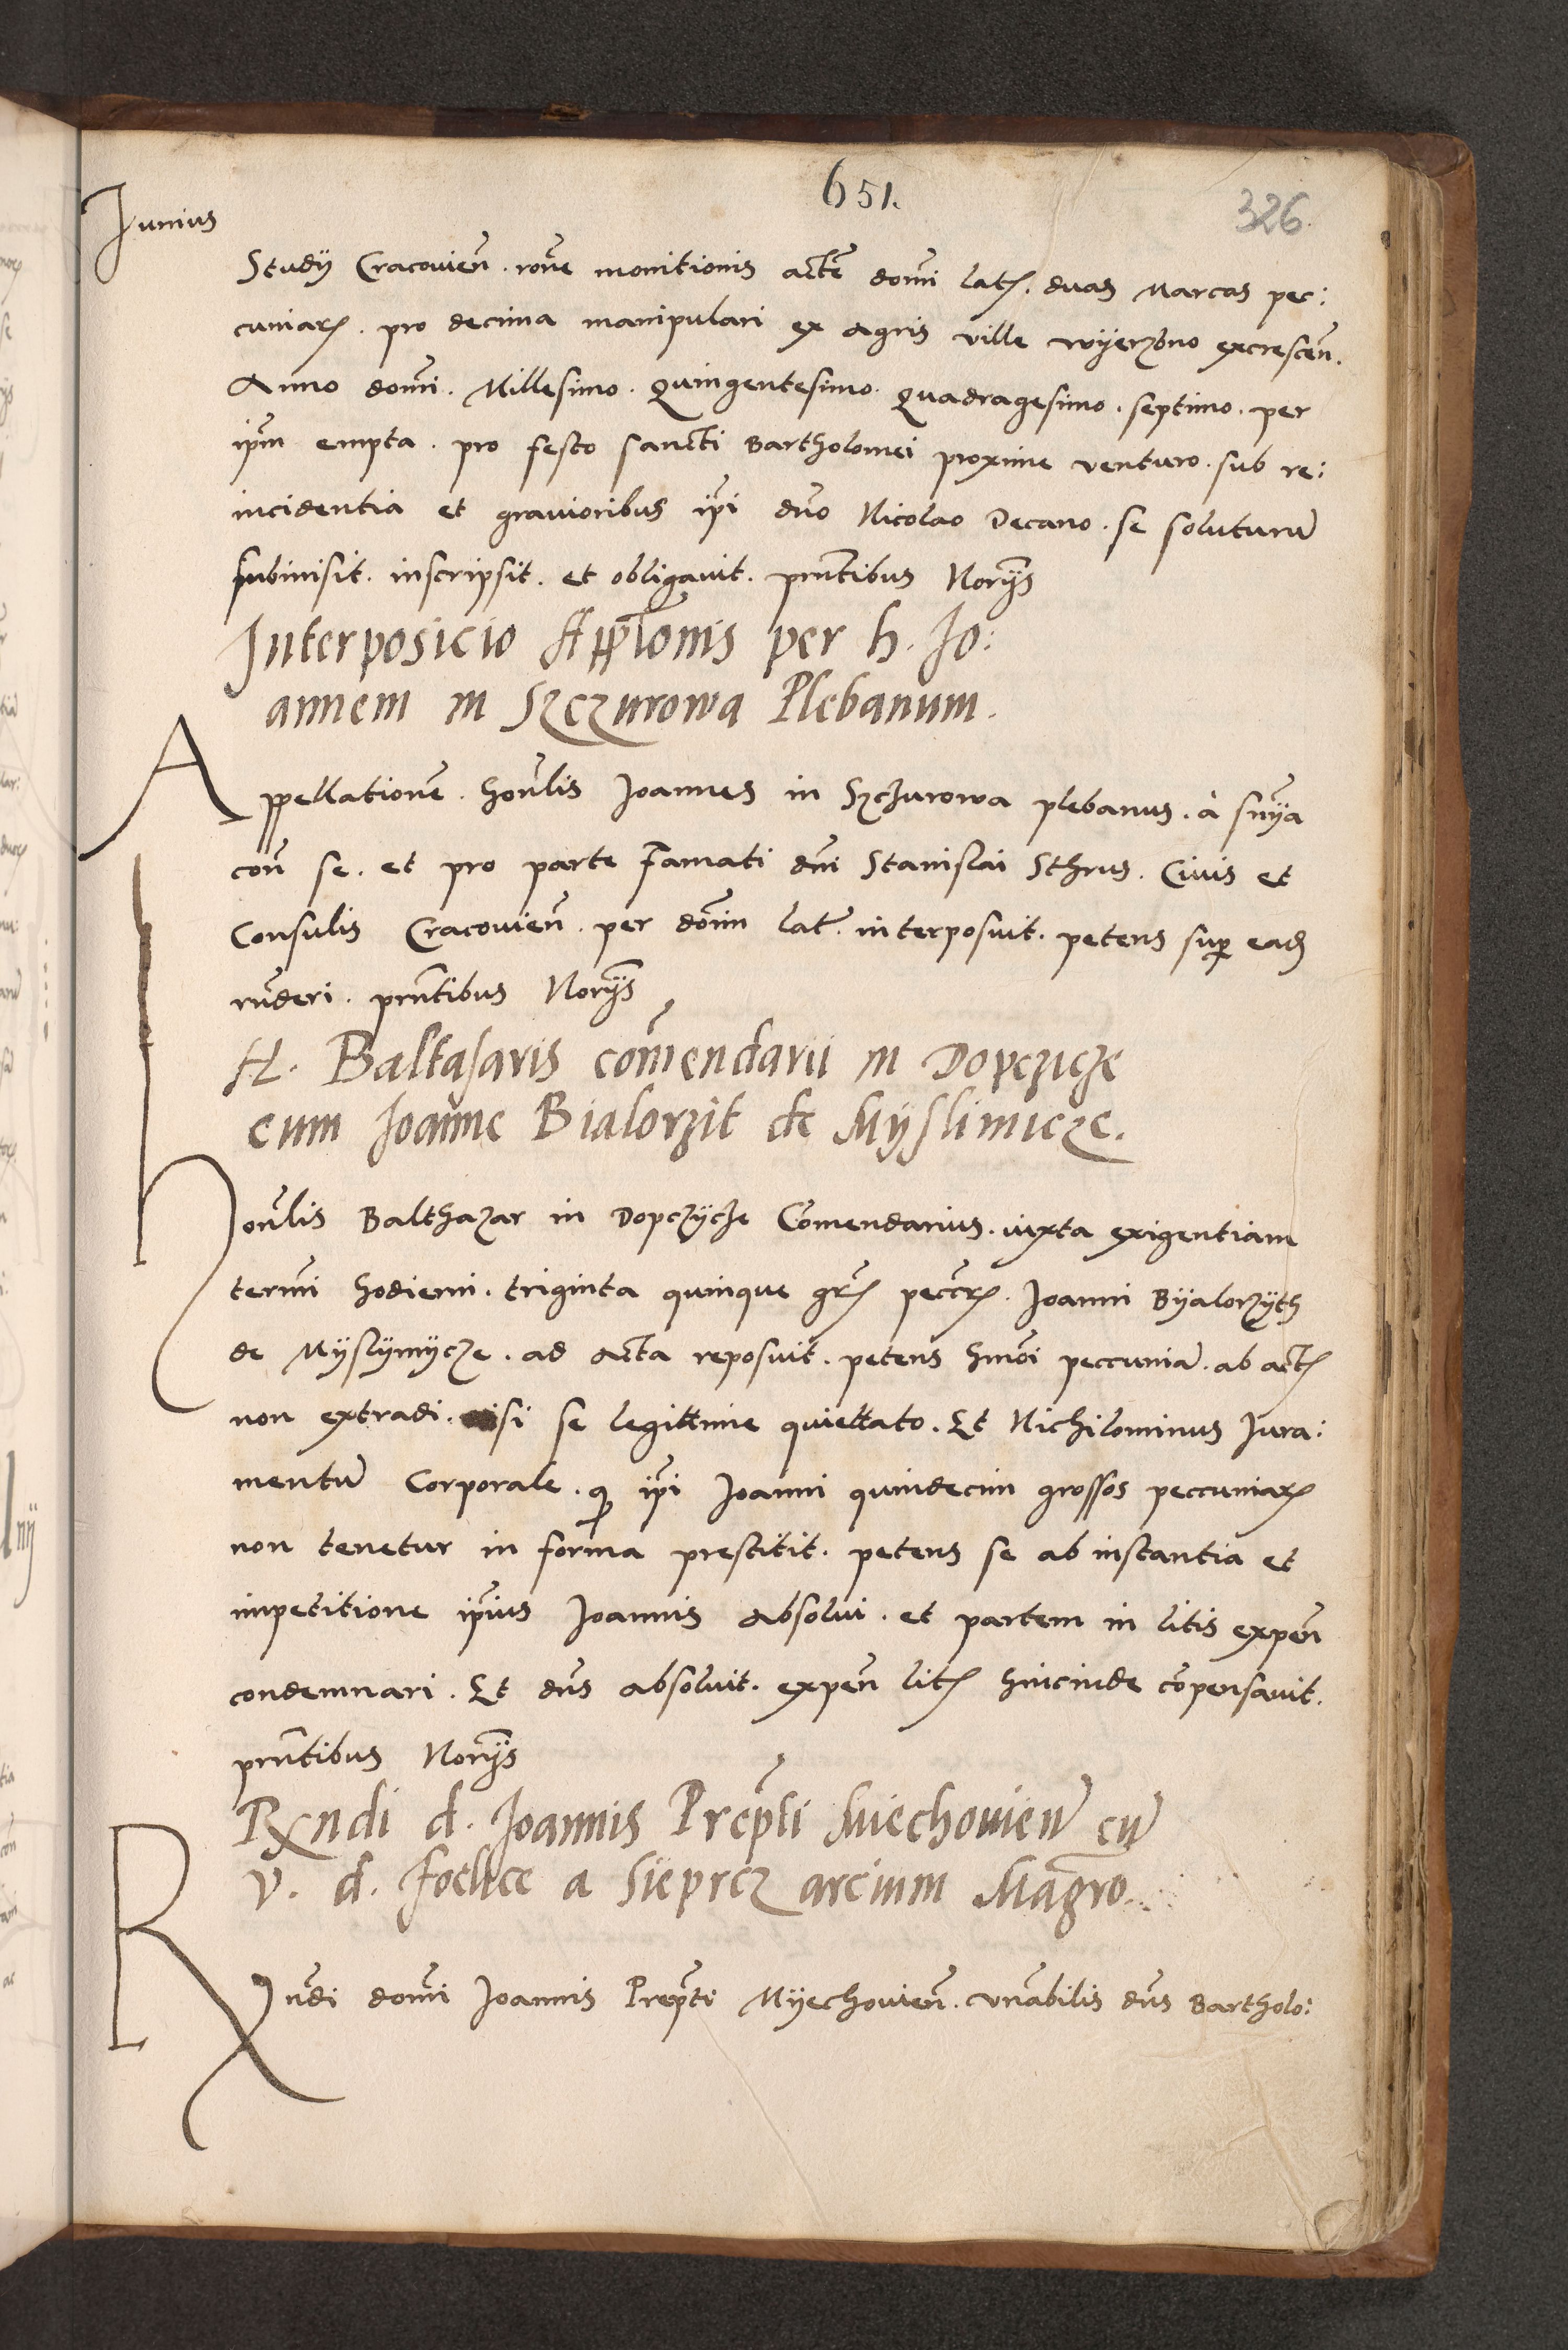 651.
326.
Junius
Study Cracovien̄. rōne monitionis actēꝭ domī latꝭ. duas Marcas pec:
cuniarꝭ. pro decima manipulari ex agris ville wyerzbno excrescen̄.
Anno domī. Millesimo. Quingentesimo. Quadragesimo. septimo. per
ip̄m empta. pro festo sancti Bartholomei proxime venturo. sub re:
incidentia et gravioribus ip̄i dn̄o Nicolao Decano. se soluturū
submisit. inscripsit. et obligavit. prn̄tibus Norȳs
Interposicio App̄lonis per h. Jo:
annem in Szczurowa Plebanum.
Appellationē. Hon̄lis Joannes in Szczurowa plebanus. à sn̄ya
con̄ se. et pro parte famati dn̄i Stanislai Sthrus. Civis et
Consulis Cracovien̄. per domī lat̄. interposuit. petens suꝑ eadꝫ
rn̄deri. prn̄tibus Norȳs
H. Baltasaris com̄endarii in Dopczicze
cum Joanne Bialorzit de Myslimicze.
Hon̄lis Balthazar in Dopczycze Com̄endarius. iuxta exigentiam
term̄i hodierni. triginta quinque gr̄ꝭ pecc̄rꝭ. Joanni Byalorzyth
de Myslymycze. ad acta reposuit. petens hm̄oi peccuniā. ab actꝭ
non extradi. nisi se legittime quiettato. Et Nichilominus Jura:
mentū Corporale. ꝙ ip̄i Joanni quindecim grossos peccuniarꝭ
non tenetur in forma prestitit. petens se ab instantia et
impetitione ip̄ius Joannis absolvi. et partem in litis expen̄
condemnari. Et dn̄s absolvit. expen̄ litꝭ hincinde cōpensavit.
prn̄tibus Norȳs
Rxndi d. Joannis Prep̄ti Miechovien̄ cū
v. d. foelice a Sieprcz arcium Mag̅ro.
Rxn̄di domī Joannis Prep̄ti Myechovien̄. vn̄abilis dn̄s Bartholo: